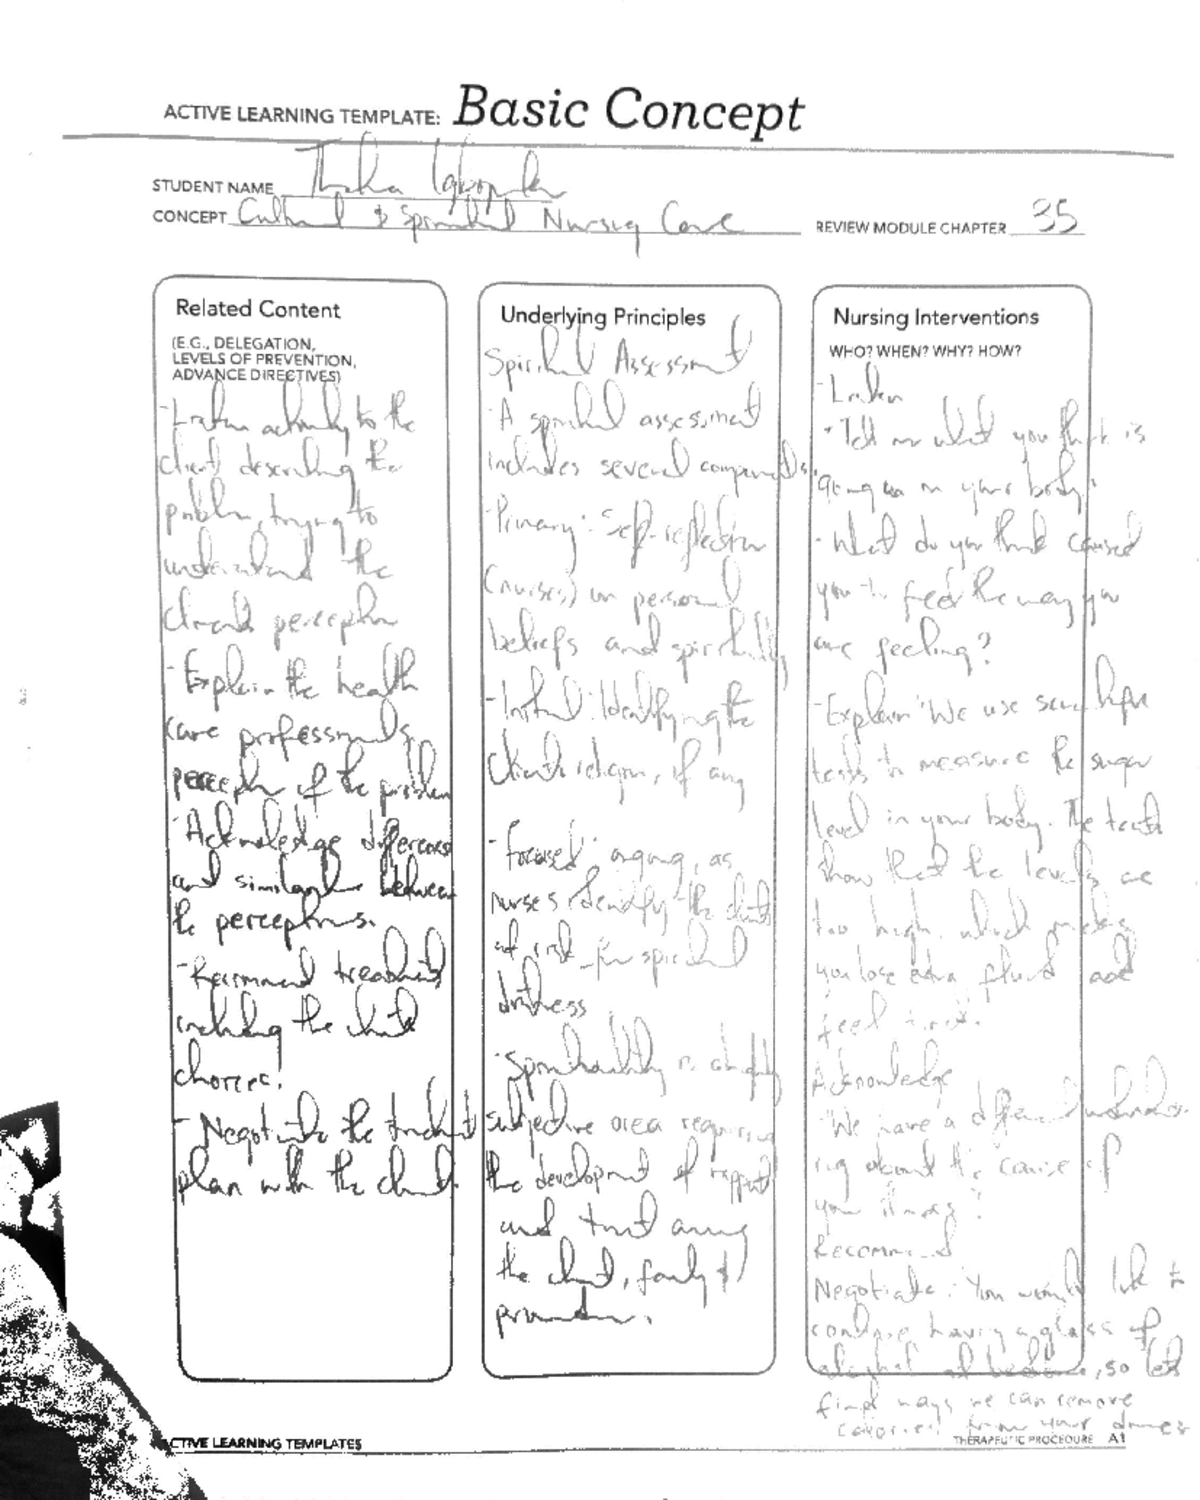 ACTIVE LEARNING TEMPLATE: Basic Concept
STUDENT NAME
CONCEPT Cultural & Spiritual Nursing Care
REVIEW MODULE CHAPTER 35
Related Content
(E.G., DELEGATION,
LEVELS OF PREVENTION,
ADVANCE DIRECTIVES)
-Listen actively to the
client describing the
problem, trying to
understand the
client's perception
-Explain the health
care professionals
perception of the problem
-Acknowledge differences
and similarities between
the perceptions.
-Recommend treatment
including the client
choices.
- Negotiate the treatment
plan with the client.
Underlying Principles
Spiritual Assessment
-A spiritual assessment
includes several components.
-Primary: Self-reflection
(nurses) on personal
beliefs and spirituality
-Initial: Identifying the
client's religion, if any
-focused: ongoing, as
nurses identify the clients
at risk for spiritual
distress
-Spirituality is a highly
subjective area requiring
the development of rapport
and trust among
the client, family &
provider.
Nursing Interventions
WHO? WHEN? WHY? HOW?
-Listen
"Tell me what you think is
going on in your body"
-What do you think caused
you to feel the way you
are feeling?
-Explain "We use
tests to measure the sugar
level in your body. The tests
show that the levels are
too high, which makes
you lose extra fluid and
feel tired.
Acknowledge
"We have a different understand-
ing about the cause of
your illness"
Recommend
Negotiate: You would like to
continue having a glass of
alcohol at bedtime, so let's
find ways we can remove
calories from your
ACTIVE LEARNING TEMPLATES
THERAPEUTIC PROCEDURE A1